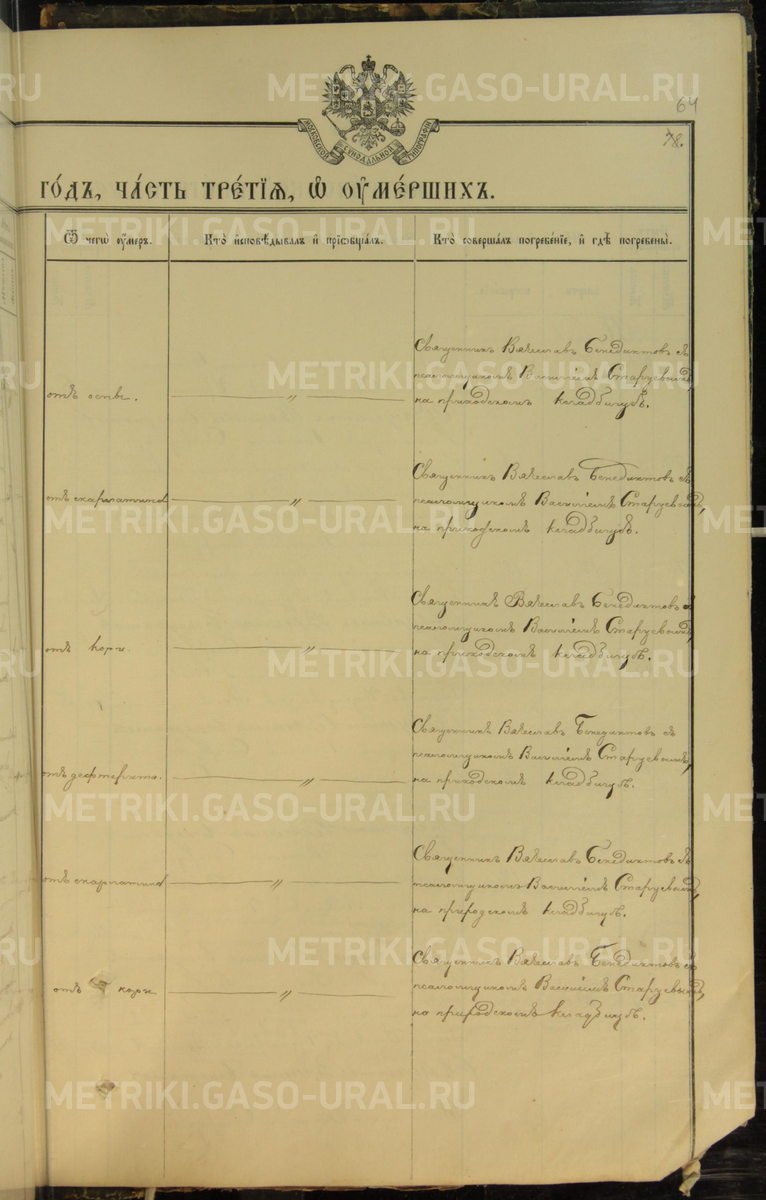 64
78.
МОСКОВСКОЙ СѴНОДАЛЬНОЙ ТИПОГРАФІИ
ГО́ДЪ, ЧА́СТЬ ТРЕ́ТІѦ, Ѽ ОУ҆МЕ́РШИХЪ.
Ѿ чегѡ̀ оу҆́меръ.
Кто̀ и҆сповѣ́дывалъ и҆ прїѡбща́лъ.
Кто̀ соверша́лъ погребе́нїе, и҆ гдѣ̀ погребены̀.
отъ оспы.
Священникъ Вячеславъ Бенедиктовъ съ
псаломщикомъ Василіемъ
на приходскомъ кладбищѣ.
отъ скарлатины
Священникъ Вячеславъ Бенедиктовъ съ
псаломщикомъ Василіемъ
на приходскомъ кладбищѣ.
отъ кори.
Священникъ Вячеславъ Бенедиктовъ съ
псаломщикомъ Василіемъ
на приходскомъ кладбищѣ.
отъ дефтерита.
Священникъ Вячеславъ Бенедиктовъ съ
псаломщикомъ Василіемъ
на приходскомъ кладбищѣ.
отъ скарлатины
Священникъ Вячеславъ Бенедиктовъ съ
псаломщикомъ Василіемъ
на приходскомъ кладбищѣ.
отъ кори
Священникъ Вячеславъ Бенедиктовъ съ
псаломщикомъ Василіемъ
на приходскомъ кладбищѣ.
METRIKI.GASO-URAL.RU